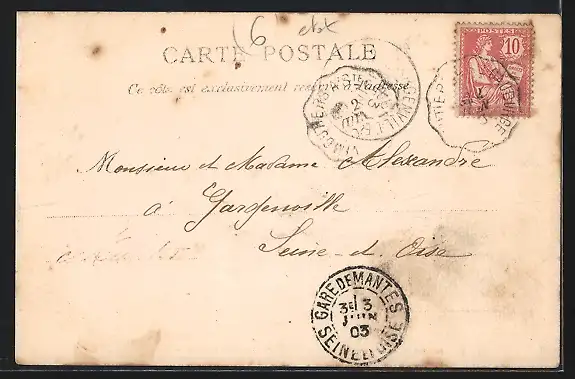 (6
CARTE POSTALE
Ce côté est exclusivement réservé à l'adresse
POSTES
10
Monsieur et Madame Alexandre
à Gargenville
Seine-et-Oise
GARE DE MANTES
3E 3
JUIN
03
SEINE ET OISE